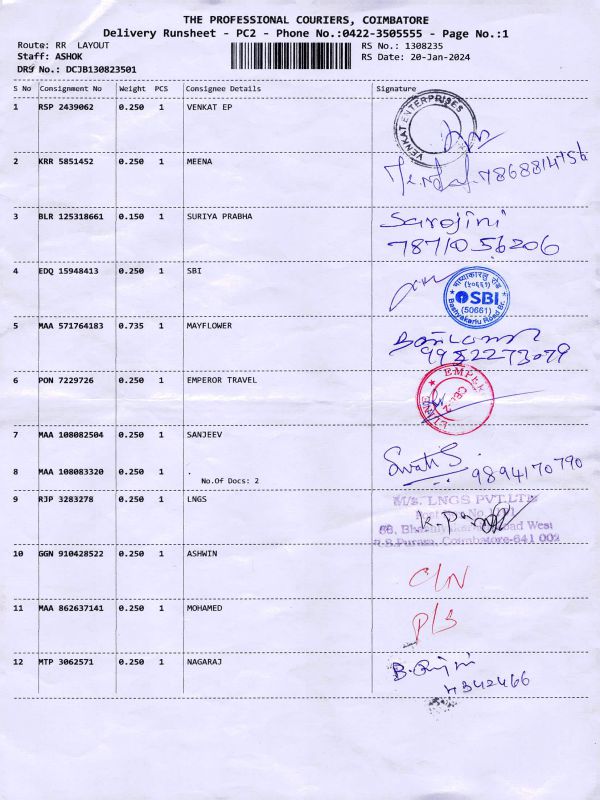 THE PROFESSIONAL COURIERS, COIMBATORE
Delivery Runsheet - PC2 - Phone No.:0422-3505555 - Page No.:1
Route: RR LAYOUT RS No.: 1308235
Staff: ASHOK RS Date: 20-Jan-2024
DRS No.: DCJB130823501
S No Consignment No Weight PCS Consignee Details Signature
1 RSP 2439062 0.250 1 VENKAT EP
VENKAT ENTERPRISES
2 KRR 5851452 0.250 1 MEENA
7868814756
3 BLR 125318661 0.150 1 SURIYA PRABHA
Sarojini
7871056206
4 EDQ 15948413 0.250 1 SBI
(५०६६१)
SBI
(50661)
Bashyakarlu Road Br.
5 MAA 571764183 0.735 1 MAYFLOWER
9952273079
6 PON 7229726 0.250 1 EMPEROR TRAVEL
7 MAA 108082504 0.250 1 SANJEEV
Swati S. 9894170790
8 MAA 108083320 0.250 1 .
No.Of Docs: 2
9 RJP 3283278 0.250 1 LNGS
M/s. LNGS PVT.LTD
Road West
R.S.Puram, Coimbatore-641 002
10 GGN 910428522 0.250 1 ASHWIN
C/N
11 MAA 862637141 0.250 1 MOHAMED
P/S
12 MTP 3062571 0.250 1 NAGARAJ